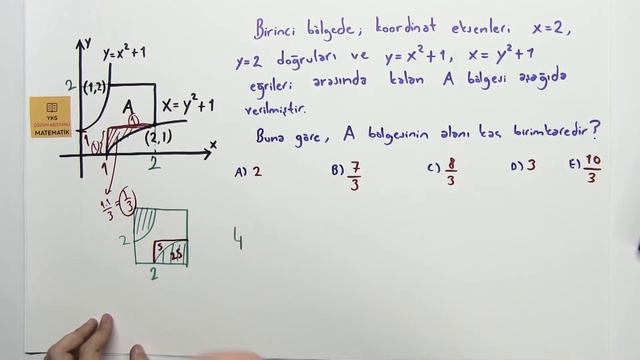 Birinci bölgede; koordinat eksenleri x=2,
y=2 doğruları ve y=x²+1, x=y²+1
eğrileri arasında kalan A bölgesi aşağıda
verilmiştir.
Buna göre, A bölgesinin alanı kaç birimkaredir?
A) 2
B) 7/3
C) 8/3
D) 3
E) 10/3
y
y=x²+1
2
(1,2)
A
x=y²+1
1
(2,1)
x
1
2
YKS
MATEMATİK
1.1/3 = 1/3
2
S
2S
2
4